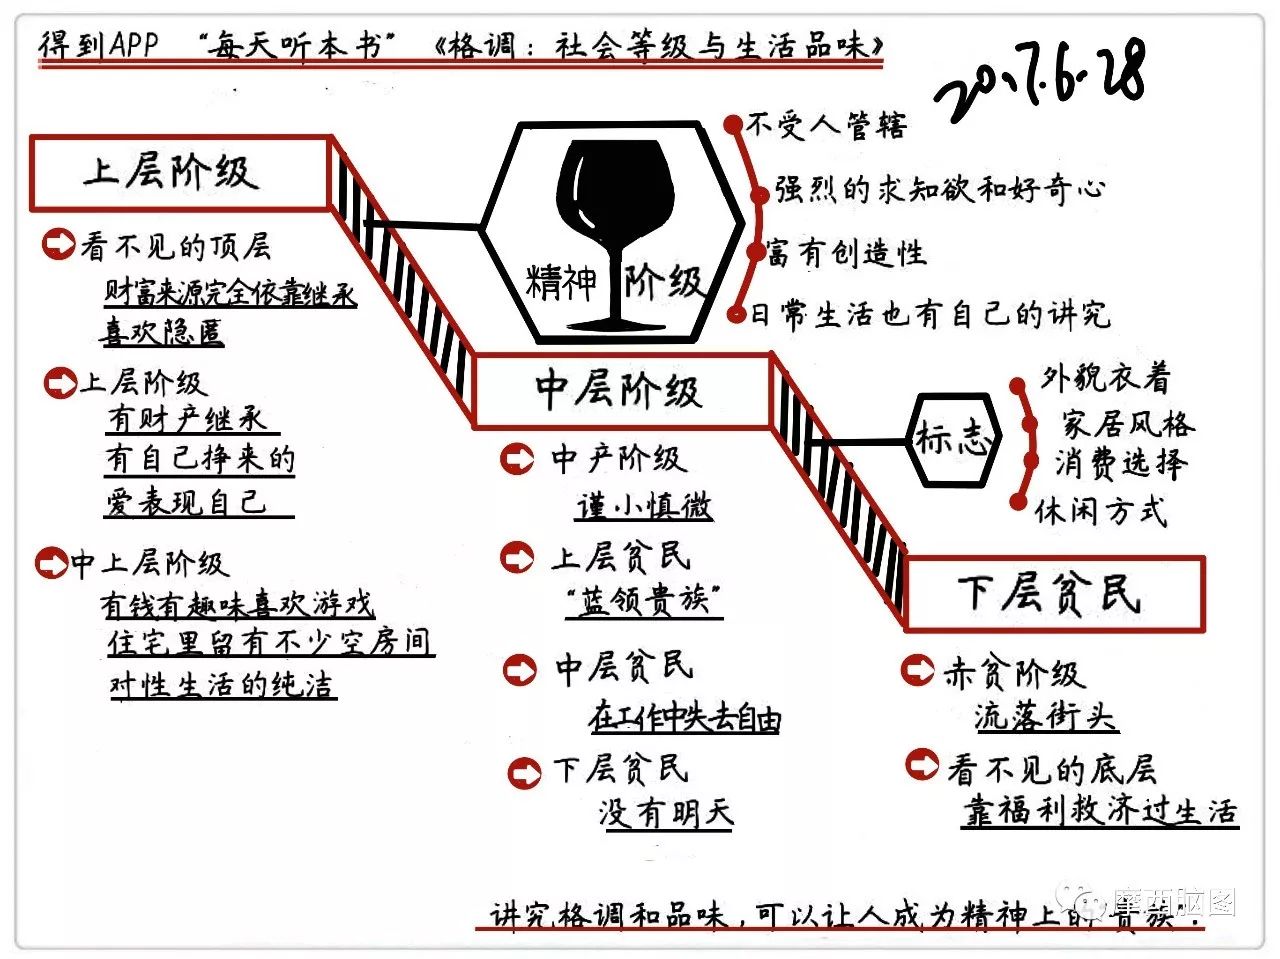 得到APP “每天听本书” 《格调：社会等级与生活品味》
2017.6.28
上层阶级
看不见的顶层
财富来源完全依靠继承
喜欢隐匿
上层阶级
有财产继承
有自己挣来的
爱表现自己
中上层阶级
有钱有趣味喜欢游戏
住宅里留有不少空房间
对性生活的纯洁
精神阶级
不受人管辖
强烈的求知欲和好奇心
富有创造性
日常生活也有自己的讲究
中层阶级
中产阶级
谨小慎微
上层贫民
“蓝领贵族”
中层贫民
在工作中失去自由
下层贫民
没有明天
标志
外貌衣着
家居风格
消费选择
休闲方式
下层贫民
赤贫阶级
流落街头
看不见的底层
靠福利救济过生活
讲究格调和品味，可以让人成为精神上的“贵族”.
摩西脑图